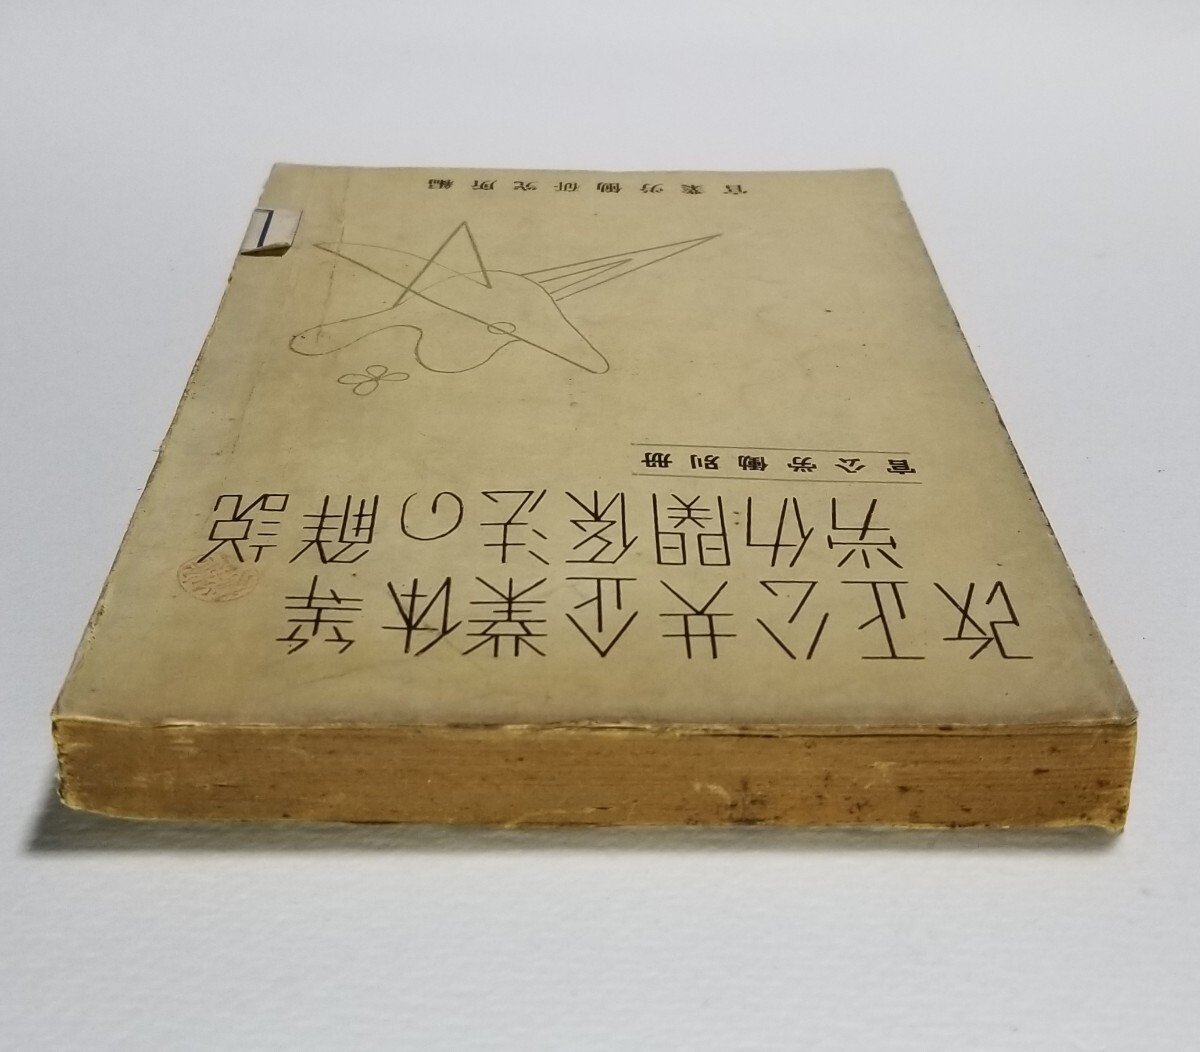 改正公共企業体等
労仂関係法の解説
官公労働別冊
官業労働研究所編